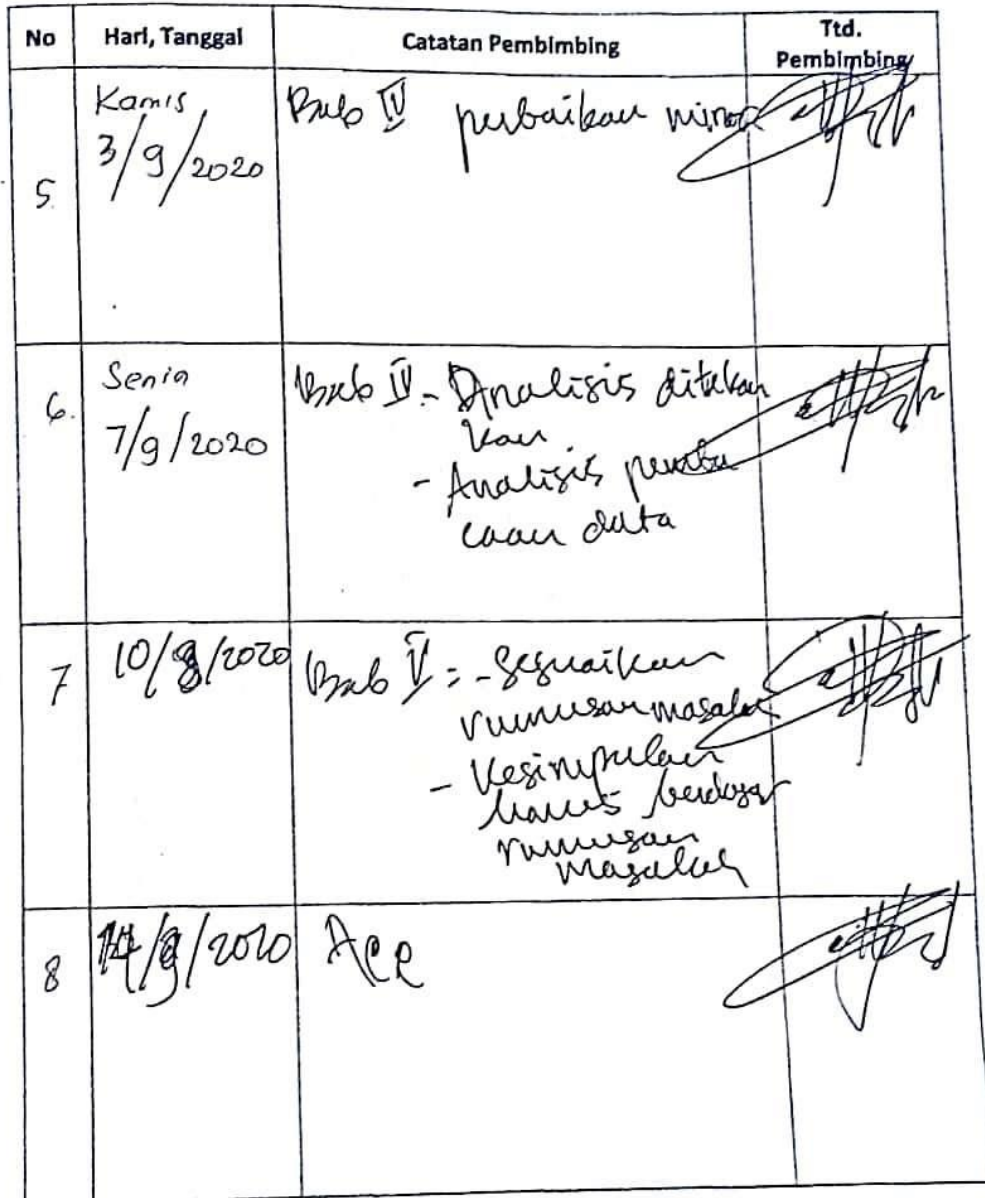 No Hari, Tanggal Catatan Pembimbing Ttd.
Pembimbing
5. Kamis Bab IV perbaikan minor
3/9/2020
6. Senin Bab IV - Analisis ditekan
7/9/2020 kan
- Analisis pemba
caan data
7 10/9/2020 Bab V : - Sesuaikan
rumusan masalah
- Kesimpulan
harus berdasar
rumusan
masalah
8 14/9/2020 Acc